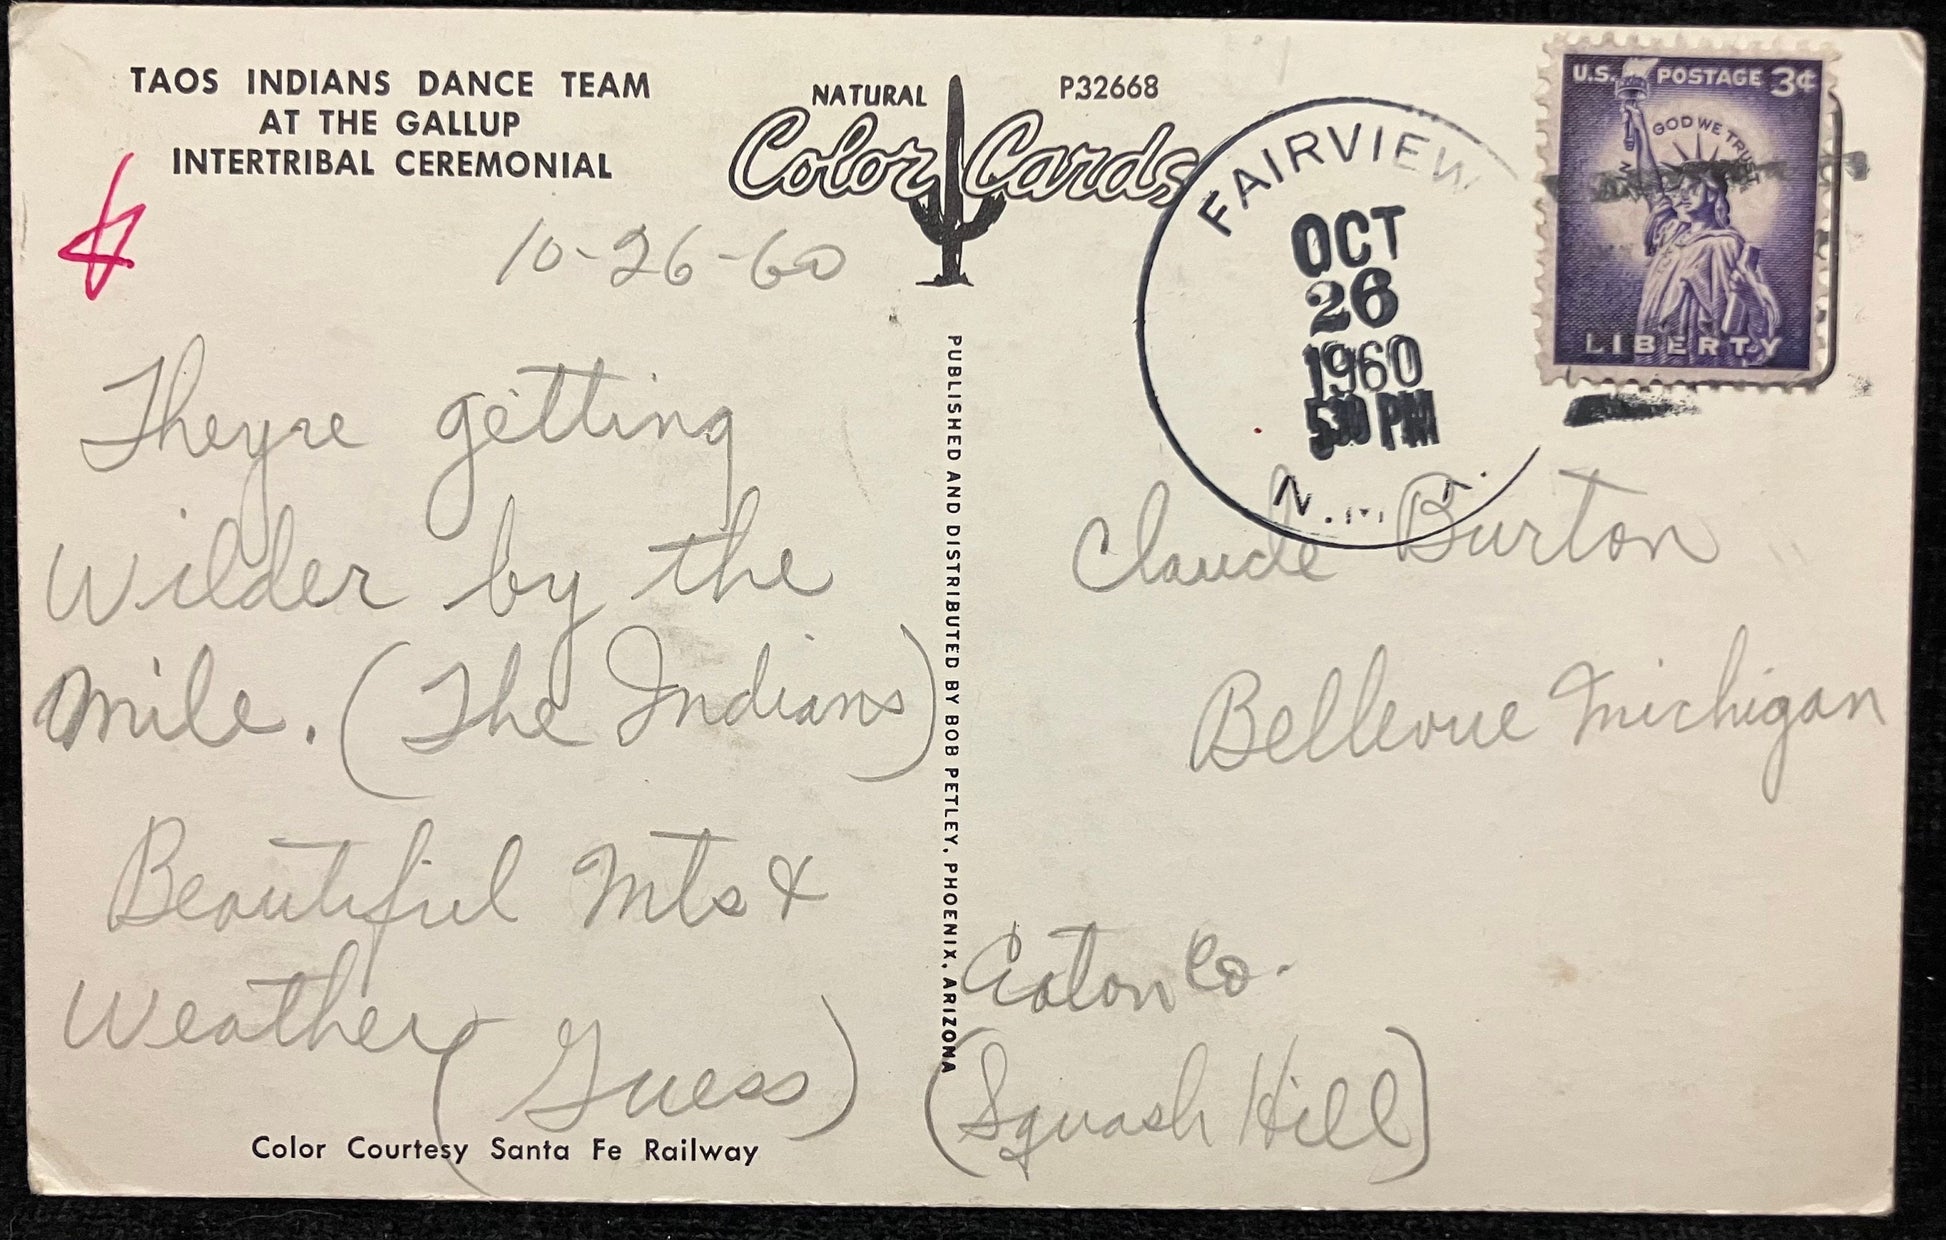 TAOS INDIANS DANCE TEAM
AT THE GALLUP
INTERTRIBAL CEREMONIAL
NATURAL
Color Cards
P32668
10-26-60
Theyre getting
Wilder by the
Mile. (The Indians)
Beautiful Mts &
Weather
(Guess)
Color Courtesy Santa Fe Railway
PUBLISHED AND DISTRIBUTED BY BOB PETLEY, PHOENIX, ARIZONA
FAIRVIEW
OCT
26
1960
PM
N.
U.S. POSTAGE 3¢
IN GOD WE TRUST
LIBERTY
Claude Burton
Bellevue Michigan
Eaton Co.
(Squash Hill)